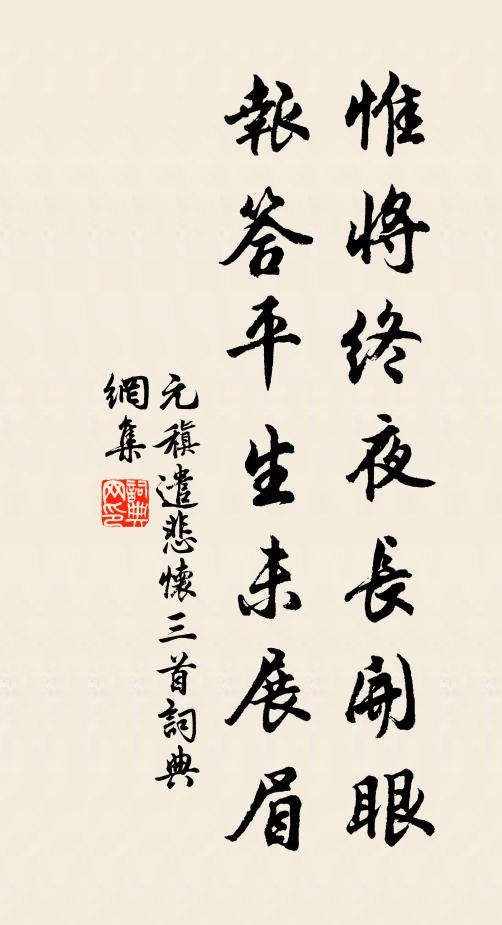 惟將終夜長開眼
報答平生未展眉
元稹遣悲懷三首詞典
網集
詞典網印